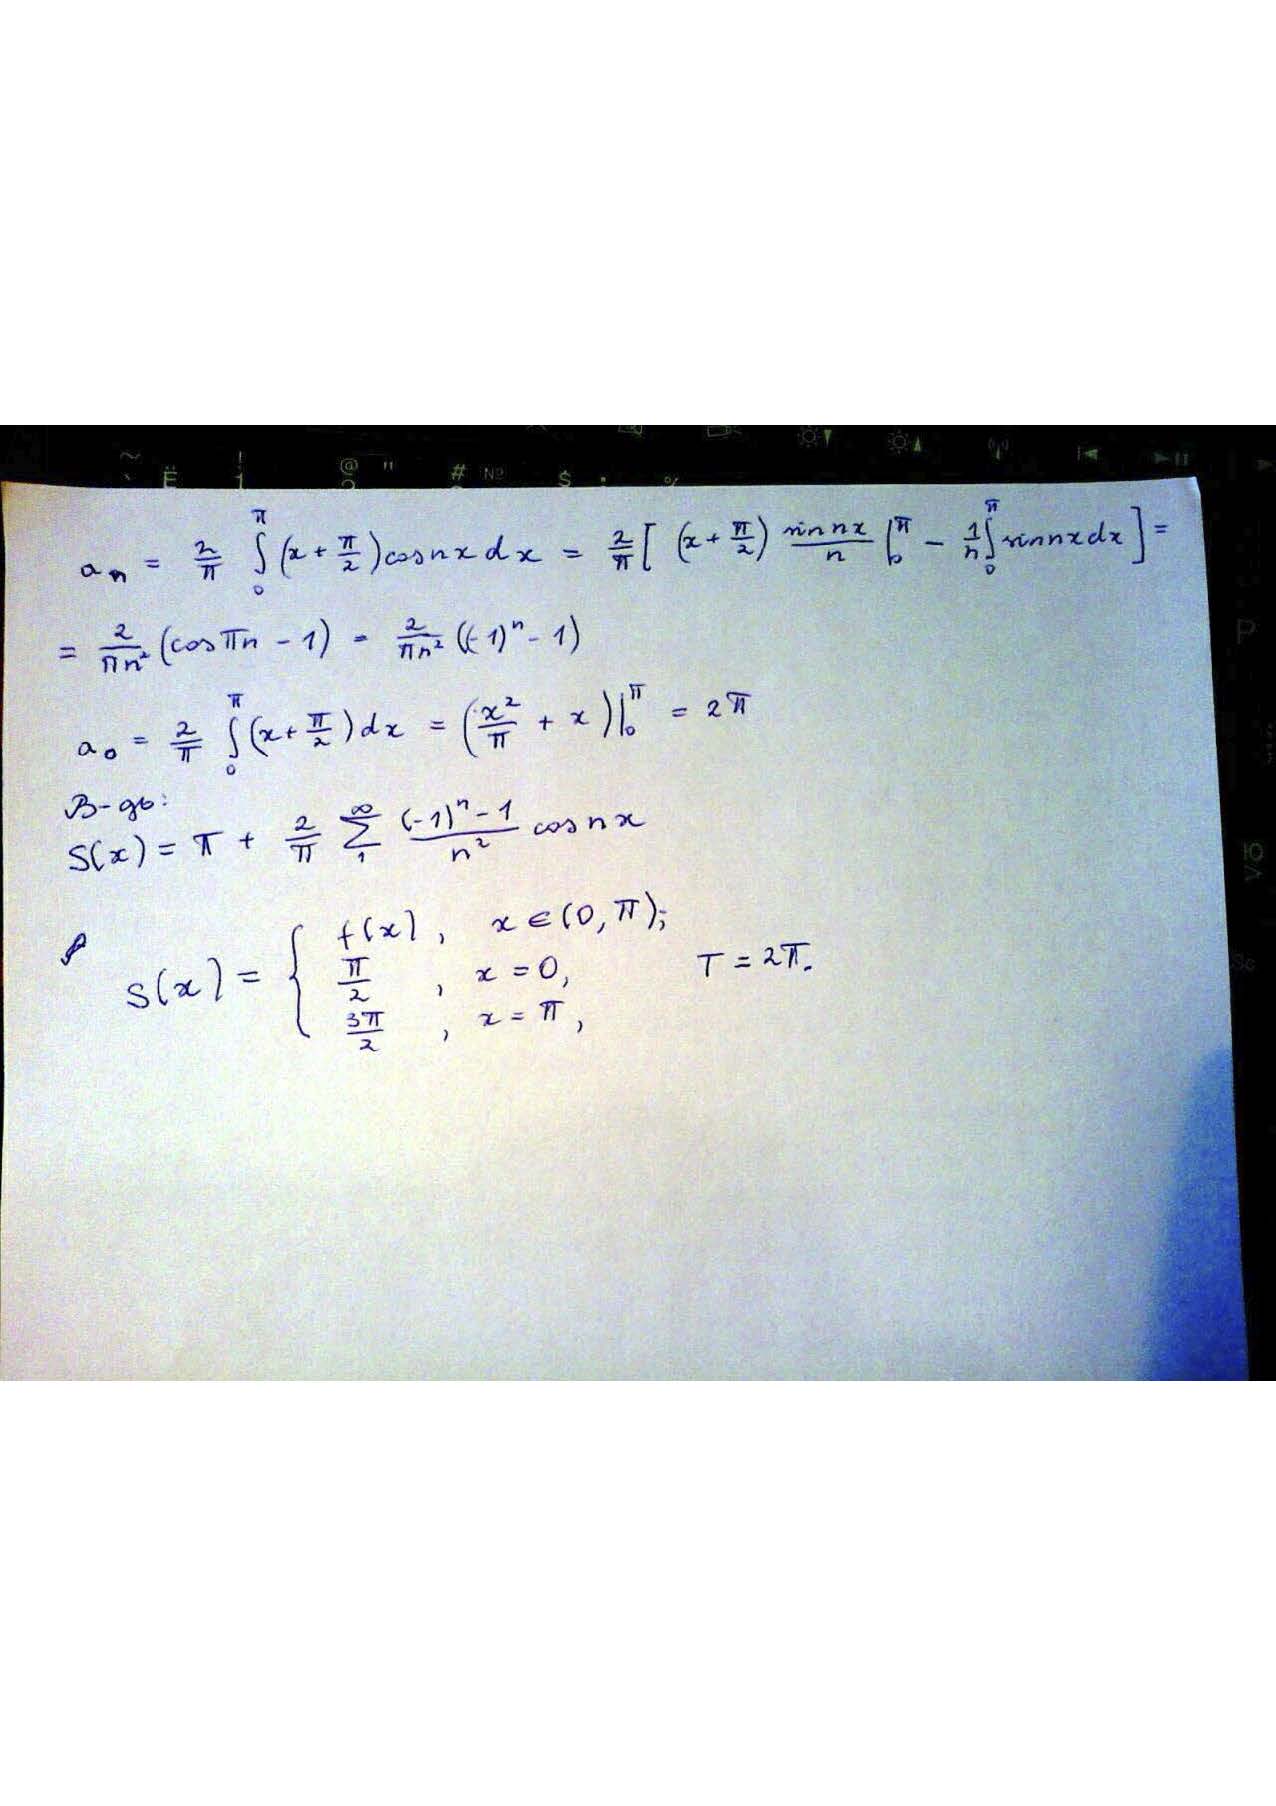 ~ ! @ " # № $ : %
` Ё 1 2
aₙ = 2/π ∫₀^π (x + π/2) cos nx dx = 2/π [ (x + π/2) sin nx/n |₀^π − 1/n ∫₀^π sin nx dx ] =
= 2/πn² (cos πn − 1) = 2/πn² ((-1)ⁿ − 1)
P
a₀ = 2/π ∫₀^π (x + π/2) dx = (x²/π + x)|₀^π = 2π
В-дь:
S(x) = π + 2/π ∑₁^∞ ((-1)ⁿ − 1)/n² cos nx
Ю
S(x) = { f(x), x ∈ (0, π);
π/2, x = 0, T = 2π.
3π/2, x = π,